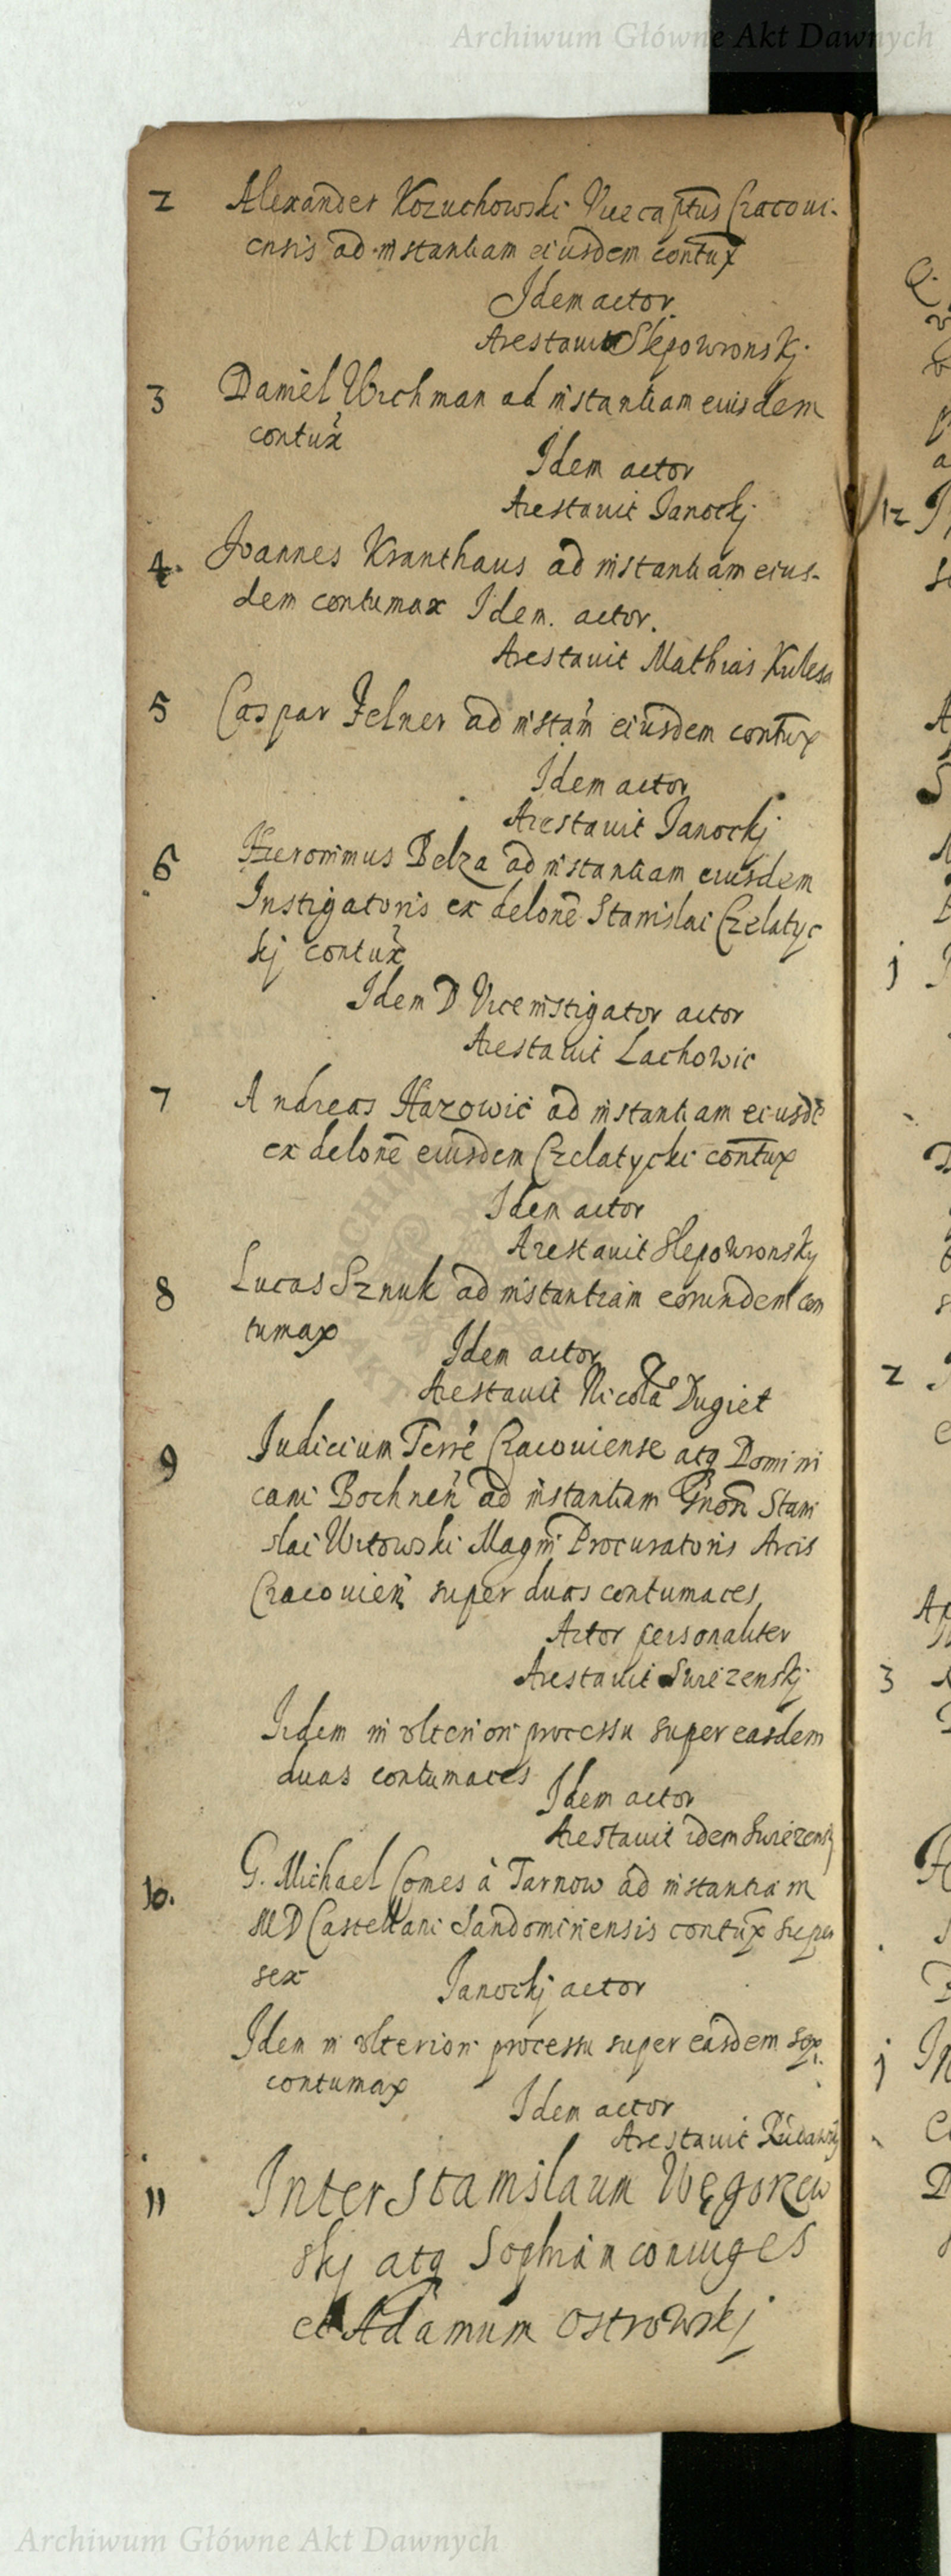 Archiwum Główne Akt Dawnych
2 Alexander Kozuchowski Vicecaptus Cracoui-
ensis ad instantiam eiusdem contux
Idem actor
Arestauit Slepowronskj
3 Daniel Wichman ad instantiam eiusdem
contux
Idem actor
Arestauit Janockj
4. Joannes Kranthaus ad instantiam eius-
dem contumax Idem actor.
Arestauit Mathias Kulesa
5 Caspar Felner ad instam eiusdem contux
Idem actor
Arestauit Janockj
6 Hieronimus Belza ad instantiam eiusdem
Instigatoris ex delone Stanislai Czelatyc
kj contux
Idem D Viceinstigator actor
Arestauit Lachowic
7 Andreas Hazowic ad instantiam eiusde
ex delone eiusdem Czelatycki contux
Idem actor
Arestauit Slepowronsky
8 Lucas Sznuk ad instantiam eorundem con
tumax
Idem actor
Arestauit Nicola Dugiet
9 Judicium Terre Cracouiense atq Domini
cani Bochnen ad instantiam Gnosi Stani
slai Witowski Magni Procuratoris Arcis
Cracouien super duas contumaces
Actor personaliter
Arestauit Swiezenskj
Iidem in vlteriori processu super easdem
duas contumaces
Idem actor
Arestauit idem Swiezensk
10. G. Michael Comes à Tarnow ad instantiam
MD Castellani Sandomiriensis contux super
sex
Janockj actor
Idem in vlteriori processu super easdem sex
contumax
Idem actor
Arestauit
11 Inter Stanislaum Węgorzew
skj atq Sophiam coniuges
et Adamum Ostrowskj
12
j
2
3
j
Archiwum Główne Akt Dawnych